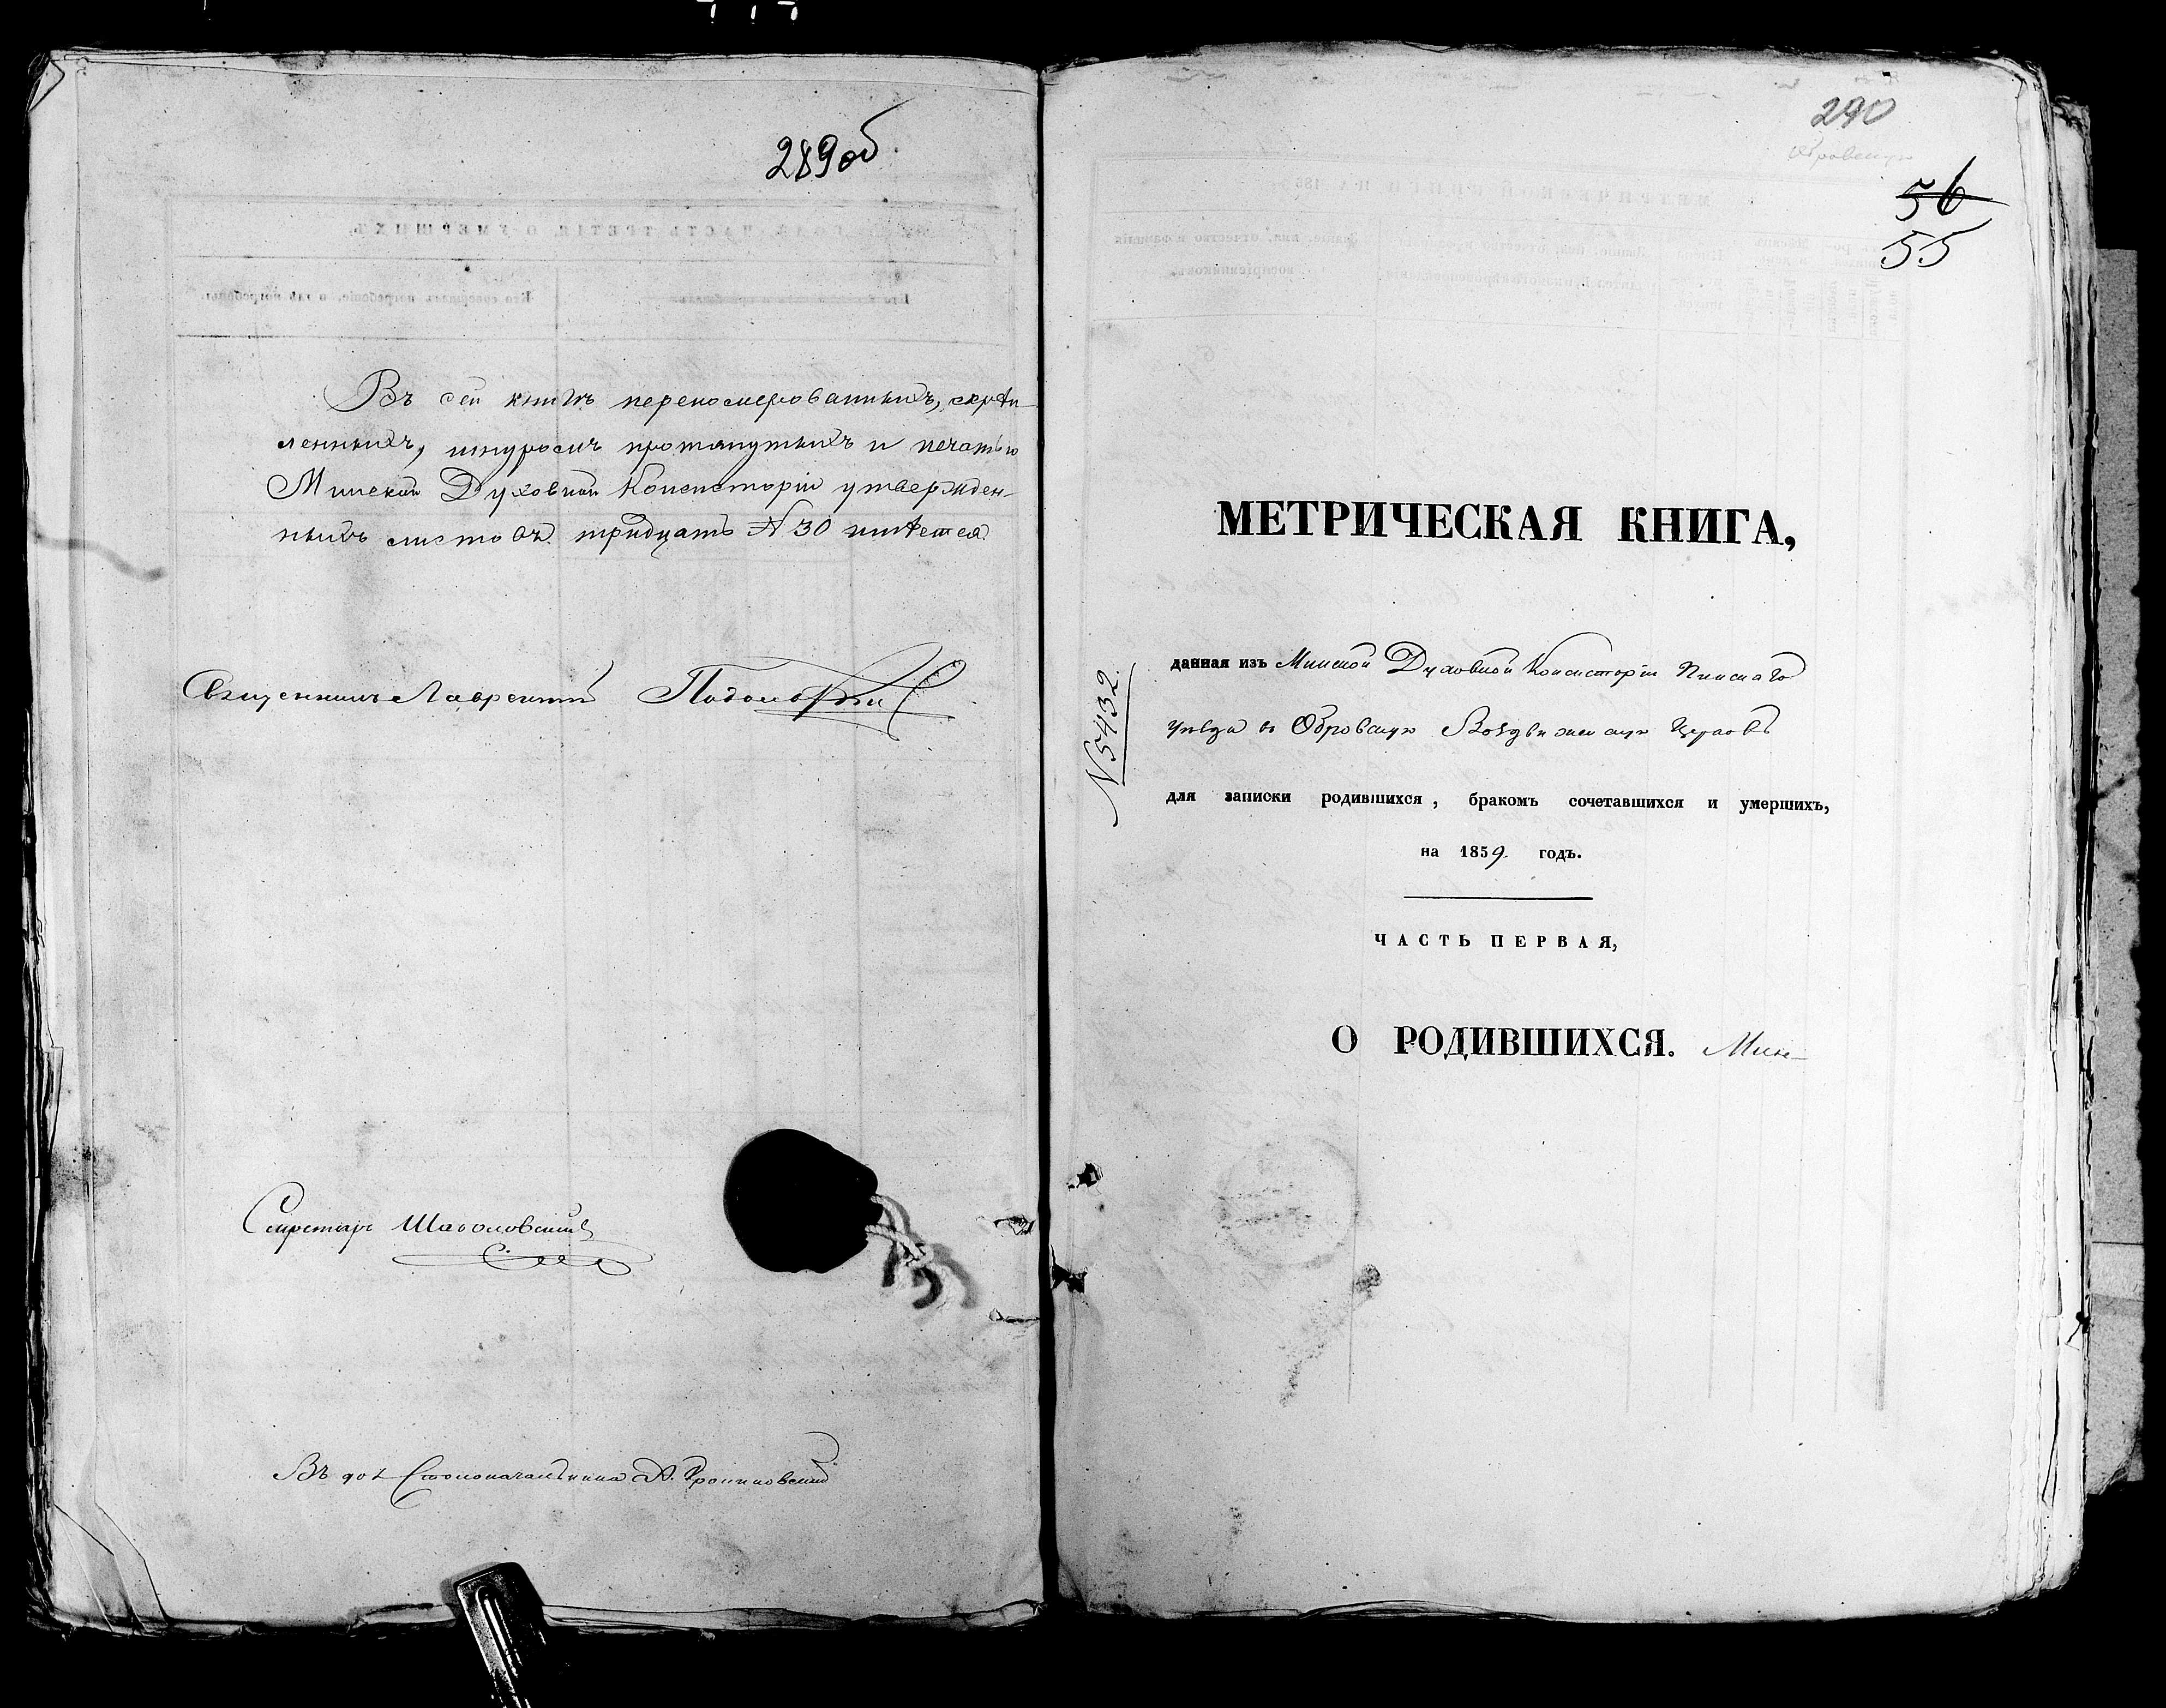 289об
Въ сей книгѣ переномерованныхъ, скрѣп-
ленныхъ, шнуромъ протянутыхъ и печатью
Минской Духовной Консисторіи утвержден-
ныхъ листовъ тридцать № 30 имѣется
Священникъ Лаврентій
Секретарь
Въ дол. Столоначальника А.
290
Обровскую
56
55
МЕТРИЧЕСКАЯ КНИГА,
№ 5432.
данная изъ Минской Духовной Консисторіи Пинскаго
уѣзда въ Обровскую Воздвиженскую Церковь
для записки родившихся, бракомъ сочетавшихся и умершихъ,
на 1859 годъ.
ЧАСТЬ ПЕРВАЯ,
О РОДИВШИХСЯ. Мин-